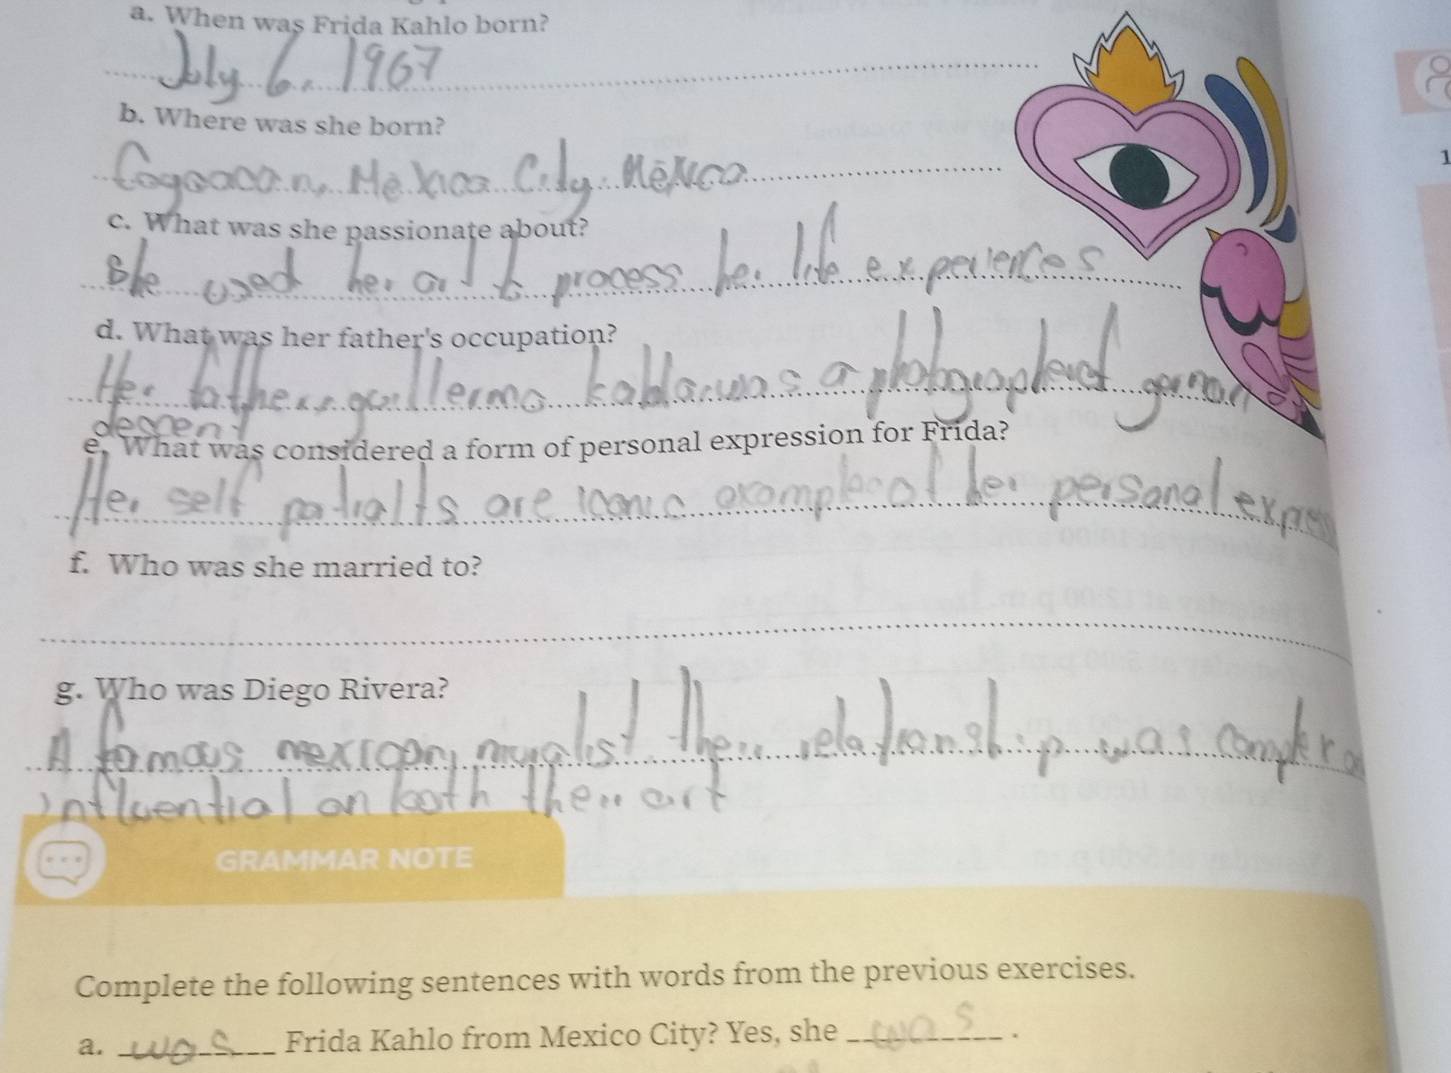 a. When was Frida Kahlo born?
July 6, 1967
b. Where was she born?
Cogoacan, Mexico City, México
c. What was she passionate about?
She used her art to process her life experiences
d. What was her father's occupation?
Her father, guillermo kahlo, was a photographer of german
descent
e. What was considered a form of personal expression for Frida?
Her self are iconic of her personal
f. Who was she married to?
g. Who was Diego Rivera?
A famous mexican muralist. Their relationship was
influential on both their art
GRAMMAR NOTE
Complete the following sentences with words from the previous exercises.
a. was Frida Kahlo from Mexico City? Yes, she was.
1